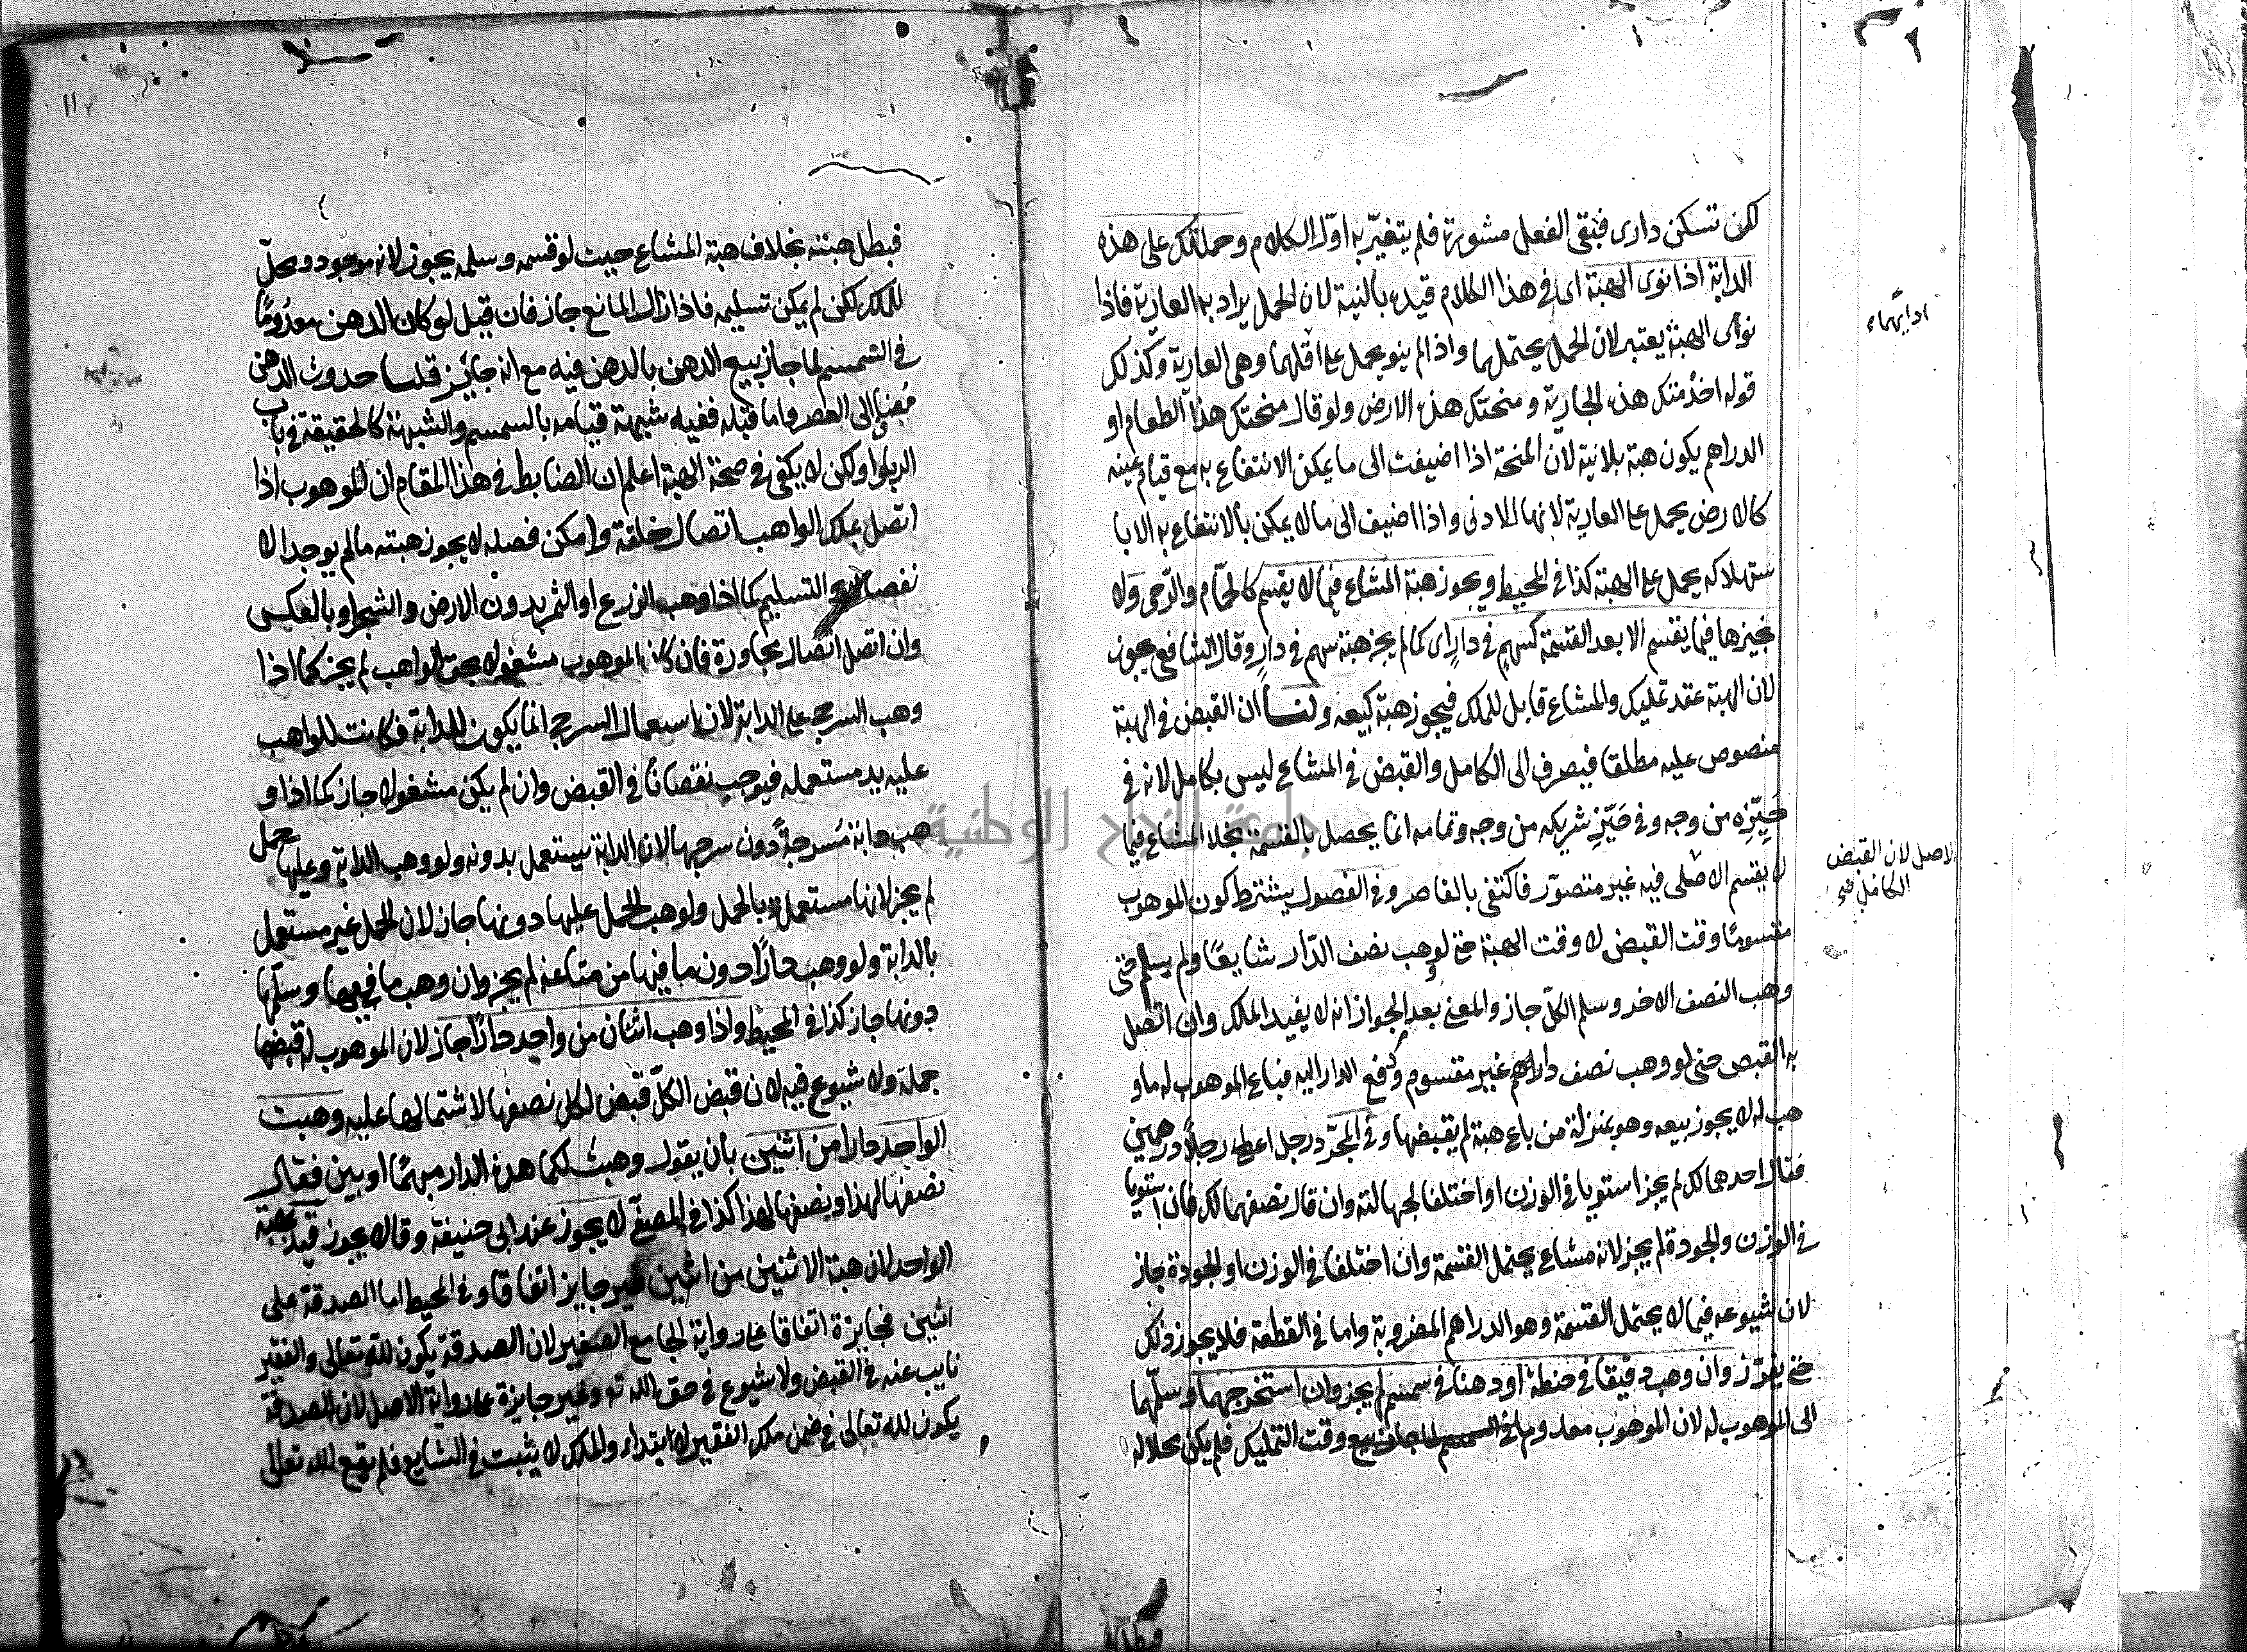 لكن تسكن دارى فبقى الفعل مشورة فلم يتغيّر به اوّل الكلام وحملتك على هذه
الدابة اذا نوى الهبة اى فى هذا الكلام قيده بالنية لان الحمل يراد به العارية فاذا
نوى الهبة يعتبر لان الحمل يحتملها واذا لم ينو يحمل على اقلهما وهى العارية وكذلك
قوله اخدمتك هذه الجارية ومنحتك هذه الارض ولو قال منحتك هذا الطعام او
الدراهم يكون هبة بلانية لان المنحة اذا اضيفت الى ما يمكن الانتفاع به مع قيام عينه
كالارض يحمل على العارية لانها الادنى واذا اضيف الى ما لا يمكن بالانتفاع به الا با
ستهلاكه يحمل على الهبة كذا فى المحيط ويجوز هبة المشاع فيما لا يقسم كالحمّام والرّحى ولا
نجيزها فيما يقسم الا بعد القسمة كسهم فى دار اى كما لم يجز هبة سهم فى دار وقال الشافعى يجوز
لان الهبة عقد تمليك والمشاع قابل للملك فيجوز هبة كبيعه ولنا ان القبض فى الهبة
منصوص عليه مطلقا فيصرف الى الكامل والقبض فى المشاع ليس بكامل لانه فى
حَيّزه من وجه وفى حَيّز شريكه من وجه وتمامه انما يحصل بالقسمة بخلاف المشاع فيما
لا يقسم الاصلى فيه غير متصوّر فاكتفى بالقاصر وفى الفصول يشترط كون الموهوب
مقسومًا وقت القبض لا وقت الهبة حتى لو وهب نصف الدّار شايعًا ولم يسلم حتى
وهب النصف الاخر وسلم الكلّ جاز والمعنى بعد الجواز انه لا يفيد الملك وان اتصل
به القبض حتى لو وهب نصف داره غير مقسوم ودفع الدار اليه فباع الموهوب له ما و
هب له لا يجوز بيعه وهو بمنزلة من باع هبة لم يقبضها وفى المجرّد رجل اعطى رجلا درهمين
فقال احدهما لك لم يجز استويا فى الوزن او اختلفا لجهالته وان قال نصفهما لك فان استويا
فى الوزن والجودة لم يجز لانه مشاع يحتمل القسمة وان اختلفا فى الوزن او الجودة جاز
لان شيوعه فيما لا يحتمل القسمة وهو الدراهم المضروبة واما فى القطعة فلا يجوز ذلك
حتى يفرز وان وهب دقيقا فى حنطة او دهنا فى سمسم لم يجز وان استخرجهما وسلّمها
الى الموهوب له لان الموهوب معدوم وقت التمليك فلم يكن محلا له
ادائهما
لاصل لان القبض
الكامل
فبطل هبته بخلاف هبة المشاع حيث لو قسمه وسلمه يجوز لانه موجود ومحلّ
للملك لكن لم يمكن تسليمه فاذا زال المانع جاز فان قيل لو كان الدهن معدُومًا
فى السّمسم لما جاز بيع الدهن بالدهن فيه مع انه جائز قلنا حدوث الدهن
مُضاف الى العصر واما قبله ففيه شبهة قيامه بالسمسم والشبهة كالحقيقة فى باب
الربوا ولكن لا يكفى فى صحّة الهبة اعلم ان الضابط فى هذا المقام ان الموهوب اذا
اتصل بملك الواهب اتصال خلقة وامكن فصله لا يجوز هبته مالم يوجد الا
نفصال والتسليم كما اذا وهب الزرع او الثمر بدون الارض والشجر او بالعكس
وان اتصل اتصال مجاورة فان كان الموهوب مشغولا بحق الواهب لم يجز كما اذا
وهب السرج على الدابة لان استعمال السرج انما يكون للدابة فكانت للواهب
عليه يد مستعمله فيوجب نقصانا فى القبض وان لم يكن مشغولا جاز كما اذا و
هب دابة مُسرجةً دون سرجها لان الدابة تستعمل بدونه ولو وهب الدابة وعليها حمل
لم يجز لانها مستعملة بالحمل ولو وهب الحمل عليها دونها جاز لان الحمل غير مستعمل
بالدابة ولو وهب دارًا دون ما فيها من متاعه لم يجز وان وهب ما فيها وسلّمها
دونها جاز كذا فى المحيط واذا وهب اثنان من واحد دارًا جاز لان الموهوب له قبضها
جملة ولا شيوع فيه لان قبض الكلّ قبض لكل نصفها لاشتمالها عليه وهبت
الواحد دارا من اثنين بان يقول وهبت لكما هذه الدار مبهمًا او بين فقال
نصفها لهذا ونصفها لهذا كذا فى المصفّى لا يجوز عند ابى حنيفة وقالا يجوز قيد بهبة
الواحد لان هبة الاثنين من اثنين غير جايز اتفاقا وفى المحيط اما الصدقة على
اثنين فجايزة اتفاقا على رواية الجامع الصغير لان الصدقة يكون لله تعالى والفقير
نايب عنه فى القبض ولا شيوع فى حق الله تع وغير جايزة على رواية الاصل لان الصدقة
يكون لله تعالى فى ضمن ملك الفقير لا ابتداء والملك لا يثبت فى الشايع فلم يقع لله تعالى
جامعة النجاح الوطنية